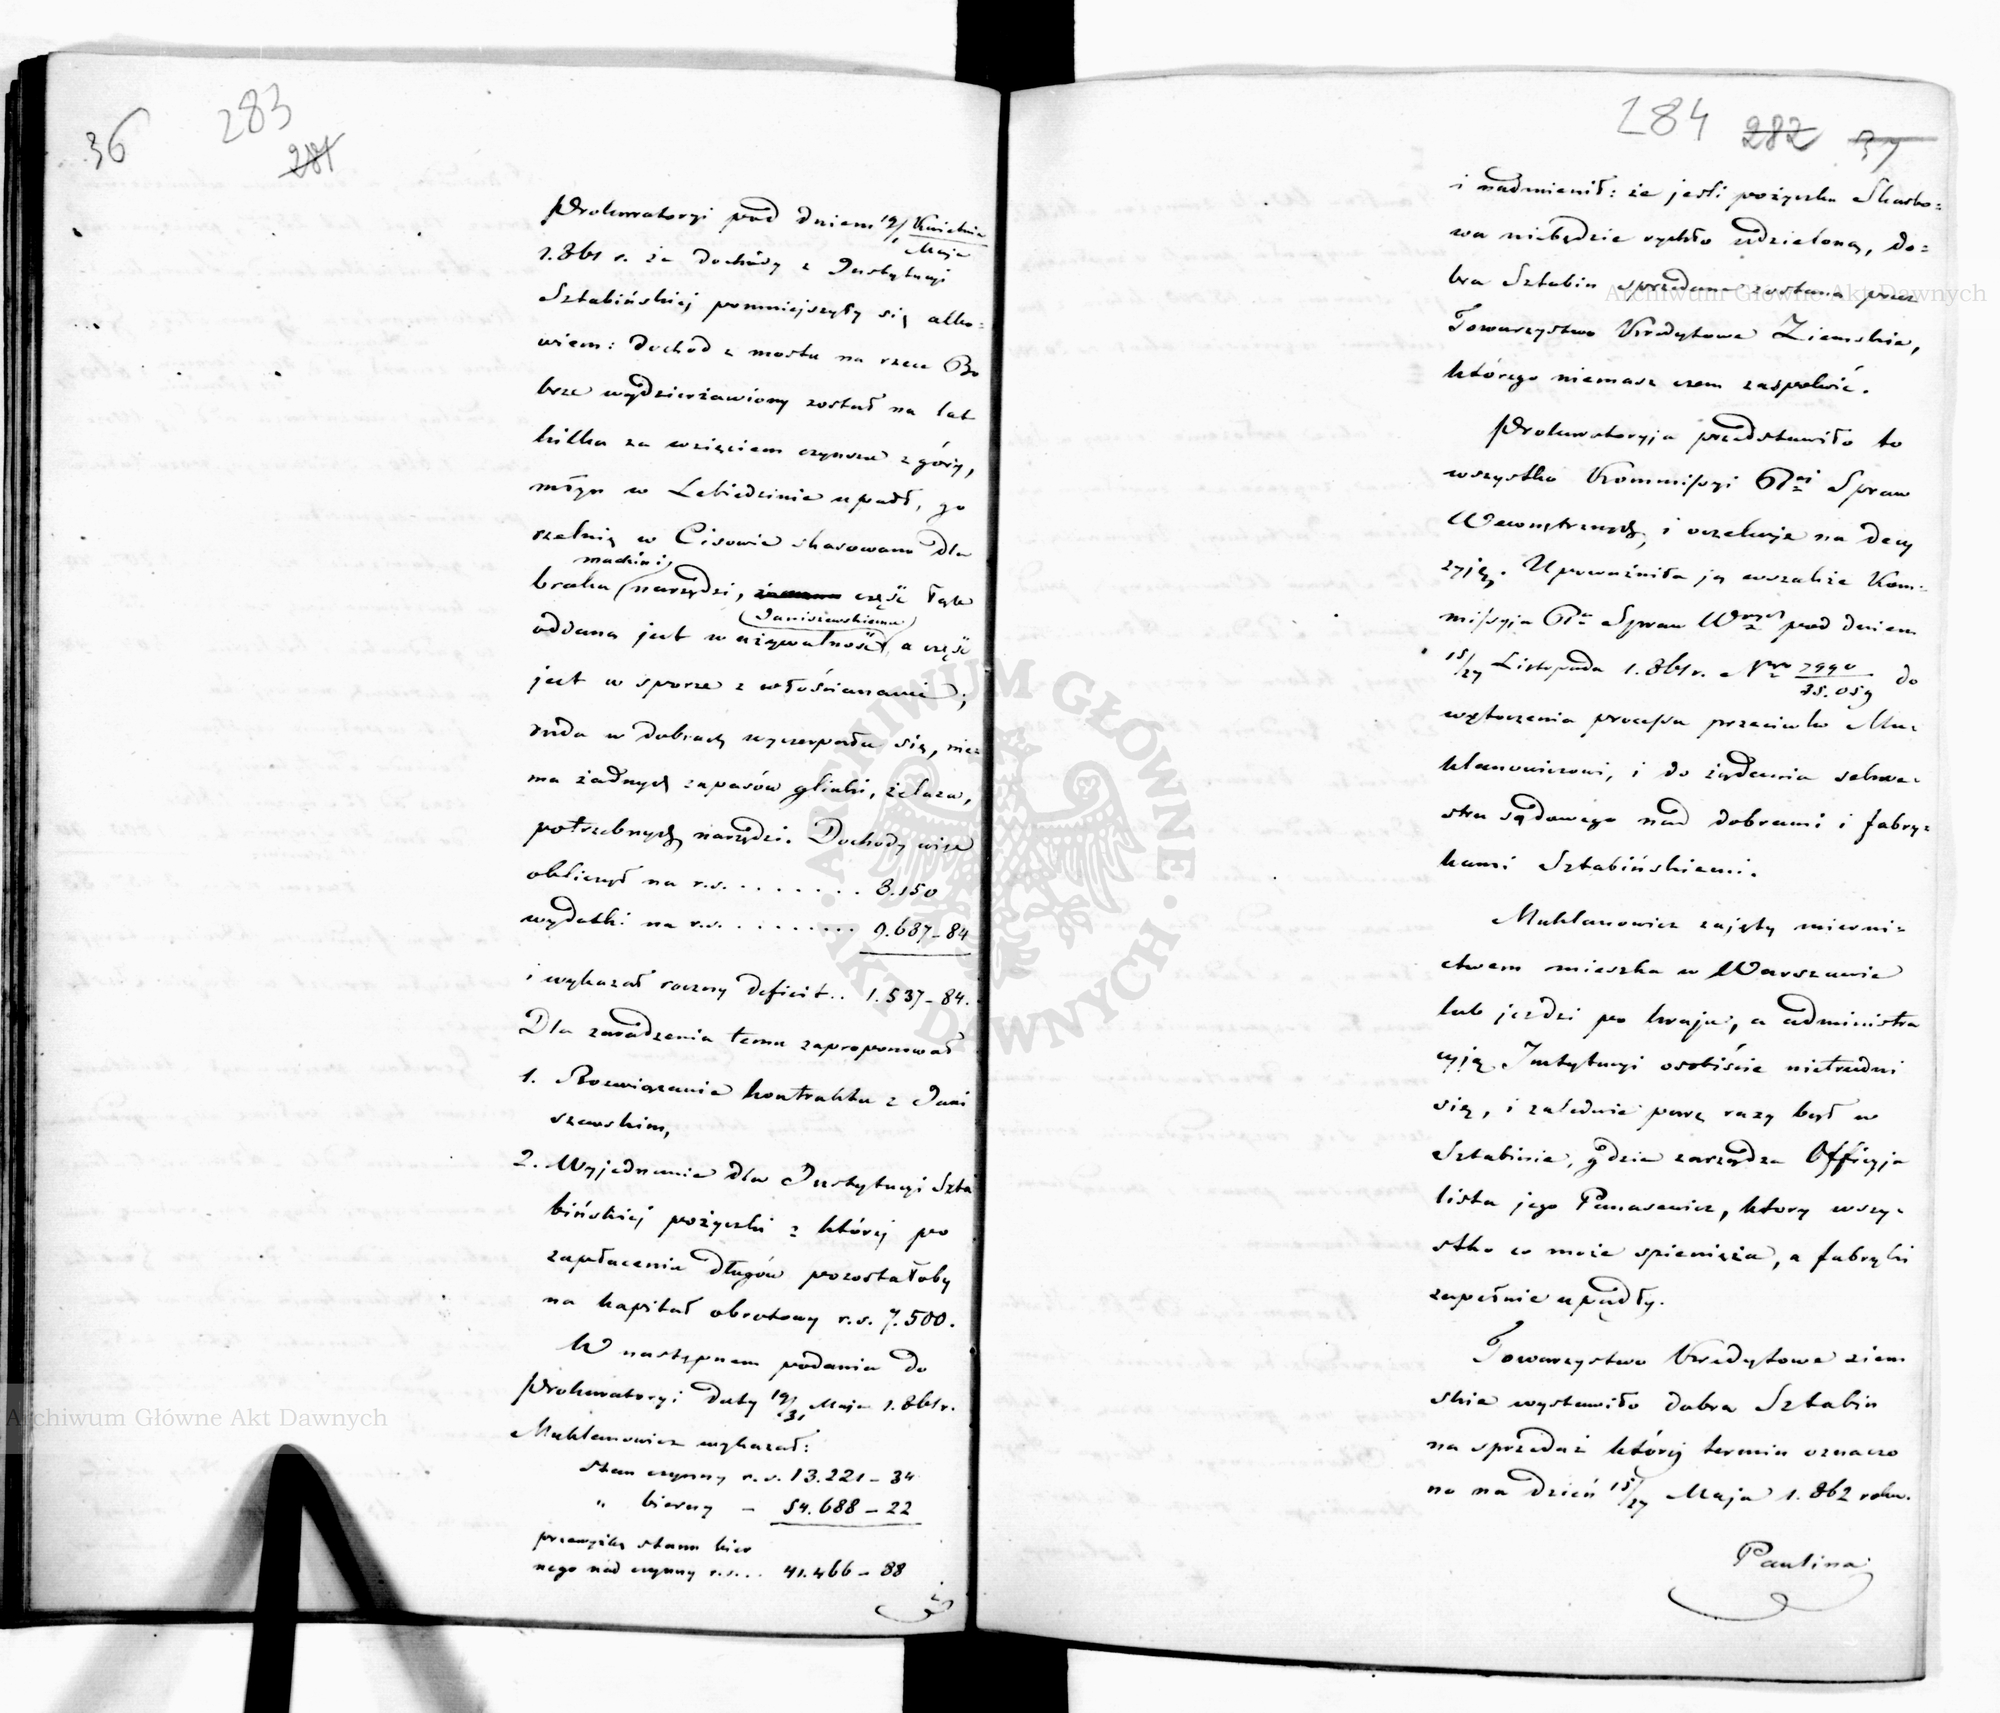 36
283
281
Prokuratoryi pod dniem 19/1 Kwietnia
Maja
1.861 r. że dochody z Instytucyi
Sztabińskiej pomniejszyły się albo-
wiem: dochód z mostu na rzece Bo
brze wydzierżawiony został na lat
kilka za wzięciem czynszu z góry,
młyn w Lebiedzinie upadł, go
rzelnię w Cisowie skasowano dla
machin i
braku narzędzi, część łąk
Janiszewskiemu
oddaną jest w używalność, a część
jest w sporze z włościanami;
ruda w dobrach wyczerpała się, nie-
ma żadnych zapasów glinki, żelaza,
potrzebnych narzędzi. Dochody więc
obliczył na r.s. . . . . . . . 8.150
wydatki na r.s. . . . . . . . . 9.687-84
i wykazał roczny deficit.. 1.537-84.
Dla zaradzenia temu zaproponował
1. Rozwiązanie kontraktu z Jani
szewskim,
2. Wyjednanie dla Instytucyi Szta
bińskiej pożyczki z której po
zapłaceniu długów pozostałoby
na kapitał obrotowy r.s. 7.500.
W następnem podaniu do
Prokuratoryi daty 19/31 Maja 1.861 r.
Muklanowicz wykazał:
stan czynny r.s. 13.221-34
" bierny - 54.688-22
przewyżkę stanu bier
nego nad czynny r.s... 41.466-88
i
284 282 37
i nadmienił: że jeśli pożyczka Skarbo-
wa niebędzie rychło udzieloną, do-
bra Sztabin sprzedane zostaną przez
Towarzystwo Kredytowe Ziemskie,
którego niemasz czem zaspokoić.
Prokuratoryja przedstawiła to
wszystko Kommissyi Rej Spraw
Wewnętrznych, i oczekuje na decy
zyję. Upoważniła ją wszakże Kom-
missyja Ra Spraw Wnych pod dniem
15/27 Listopada 1.861 r. Nro 7990/35.059 do
wytoczenia processu przeciwko Mu-
klanowiczowi, i do żądania sekwe-
stru sądowego nad dobrami i fabry-
kami Sztabińskiemi.
Muklanowicz zajęty mierni-
ctwem mieszka w Warszawie
lub jeździ po kraju, a administra
cyją Instytucyi osobiście nietrudni
się, i zaledwie parę razy był w
Sztabinie, gdzie zarządza Officyja
lista jego Panasewicz, ktory wszy-
stko co może spienięża, a fabryki
zupełnie upadły.
Towarzystwo Kredytowe ziem
skie wystawiło dobra Sztabin
na sprzedaż której termin oznaczo
no na dzień 15/27 Maja 1.862 roku.
Paulina
Archiwum Główne Akt Dawnych
Archiwum Główne Akt Dawnych
ARCHIWUM GŁÓWNE · AKT DAWNYCH ·